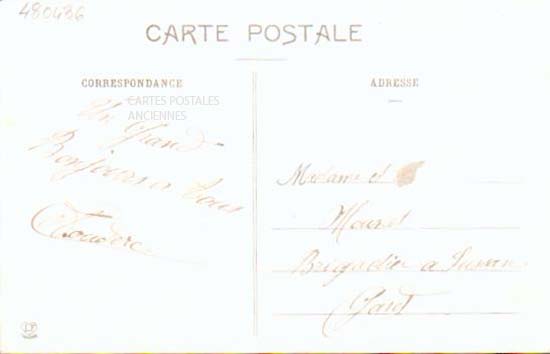 480486
CARTE POSTALE
CORRESPONDANCE
CARTES POSTALES
ANCIENNES
Un Grand
Bonjour a tous
ADRESSE
Madame et
Brigadier a
Gard